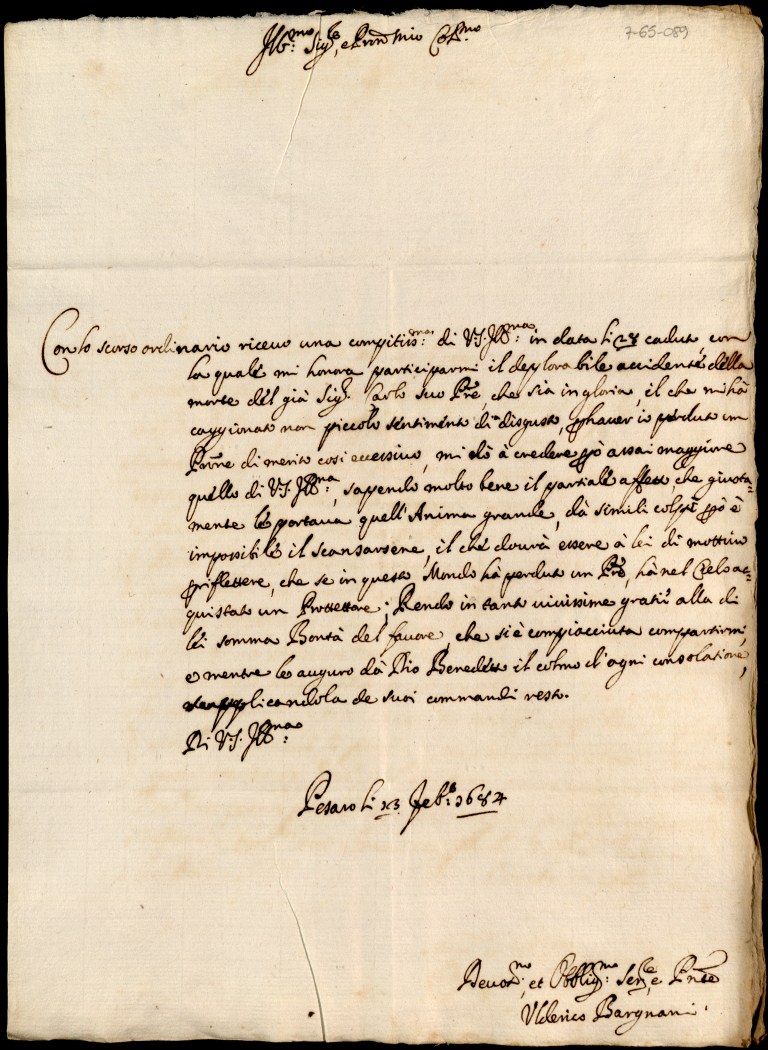 7-65-089
Ill:mo Sig:re, e Pron mio Col:mo
Con lo scorso ordinario ricevo una compitiss:ma di V.S. Ill:ma in data li 28 caduto, con
la quale mi honora participarmi il deplorabile accidente della
morte del già Sig:r Carlo suo Pre, che sia in gloria, il che mi hà
caggionato non piccolo sentimento di disgusto, p hauer io perduto un
Prone di merito cosi eccessiuo, mi dò à credere pò assai maggiore
quello di V.S. Ill:ma, sapendo molto bene il partiale affetto, che giusta=
mente le portaua quell'Anima grande, dà simili colpi pò è
impossibile il scansarsene, il che dourà essere à lei di mottiuo
p riflettere, che se in questo Mondo hà perduto un Pre, hà nel Cielo ac=
quistato un Prottettore; Rendo in tanto uiuissime gratie alla di
lei somma Bontà del fauore, che si è compiacciuta compartirmi,
e mentre le auguro dà Dio Benedetto il colmo d'ogni consolatione,
supplicandola de suoi commandi resto.
Di V.S. Ill:ma
Pesaro li 13 Feb:o 1684
Deuot:mo, et Obblig:mo Ser:re, e Pnte
Vlderico Bargnani